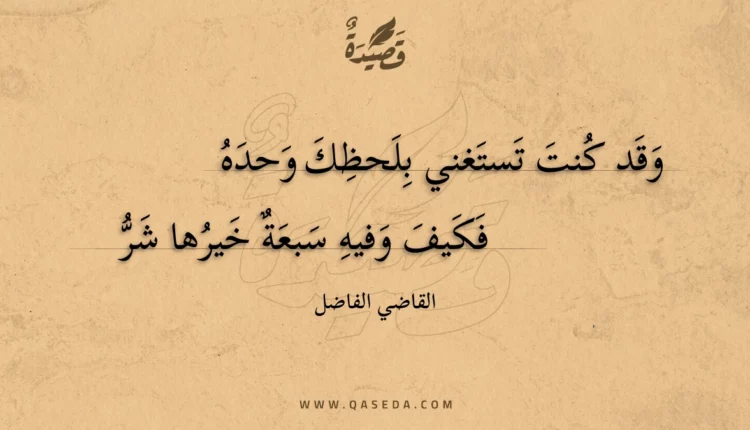 قَصِيدَةٌ
وَقَد كُنتَ تَستَغني بِلَحظِكَ وَحدَهُ
فَكَيفَ وَفيهِ سَبعَةٌ خَيرُها شَرُّ
القاضي الفاضل
WWW.QASEDA.COM